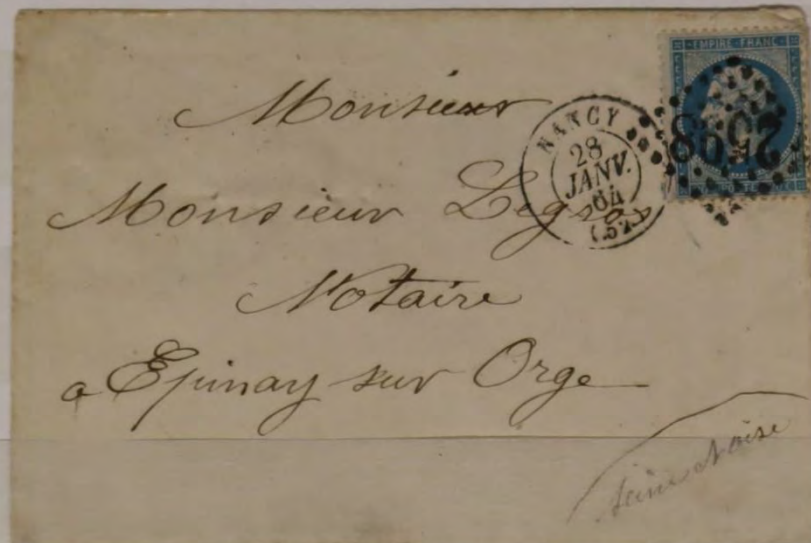 EMPIRE FRANC
2598
NANCY
28
JANV.
64
(52)
Monsieur
Monsieur
Notaire
a Epinay sur Orge
Seine & Oise